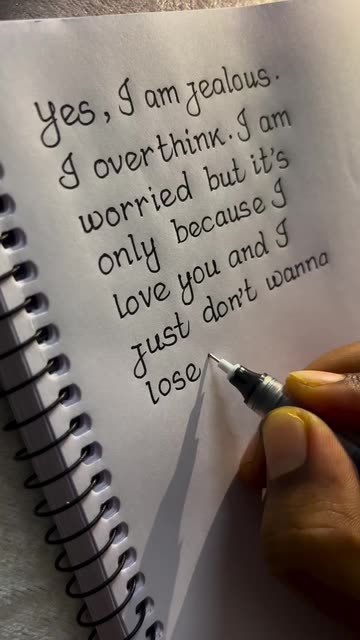 Yes, I am jealous.
I overthink. I am
worried but it's
only because I
love you and I
just don't wanna
lose